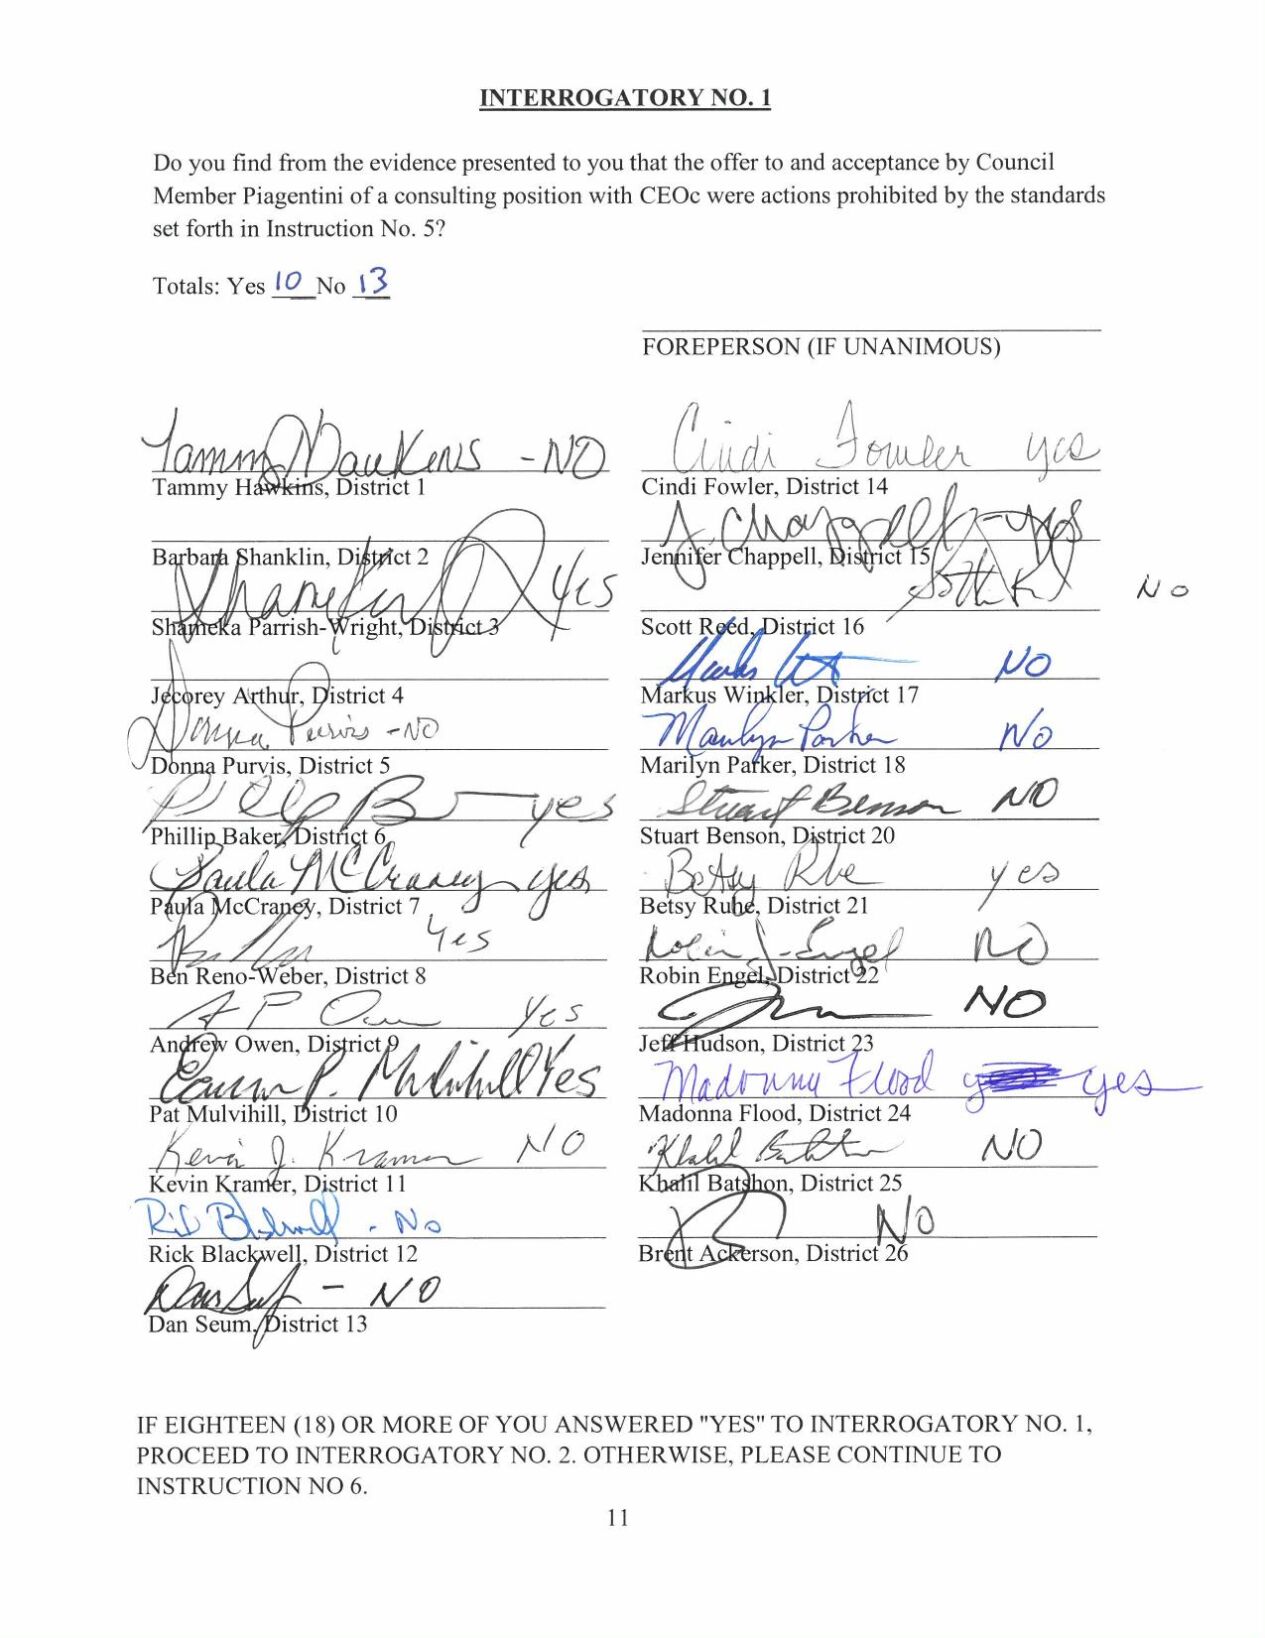 INTERROGATORY NO. 1
Do you find from the evidence presented to you that the offer to and acceptance by Council
Member Piagentini of a consulting position with CEOc were actions prohibited by the standards
set forth in Instruction No. 5?
Totals: Yes 10 No 13
FOREPERSON (IF UNANIMOUS)
Tammy Hawkins - NO
Tammy Hawkins, District 1
Barbara Shanklin, District 2
Yes
Shameka Parrish-Wright, District 3
Jecorey Arthur, District 4
Donna Purvis - NO
Donna Purvis, District 5
yes
Phillip Baker, District 6
Paula McCraney yes
Paula McCraney, District 7
Yes
Ben Reno-Weber, District 8
A P Owen Yes
Andrew Owen, District 9
P. Mulvihill Yes
Pat Mulvihill, District 10
Kevin J. Kramer NO
Kevin Kramer, District 11
Rick Blackwell - No
Rick Blackwell, District 12
Dan Seum - NO
Dan Seum, District 13
Cindi Fowler yes
Cindi Fowler, District 14
J. Chappell - yes
Jennifer Chappell, District 15
NO
Scott Reed, District 16
NO
Markus Winkler, District 17
Marilyn Parker No
Marilyn Parker, District 18
Stuart Benson NO
Stuart Benson, District 20
Betsy Ruhe yes
Betsy Ruhe, District 21
Robin J. Engel NO
Robin Engel, District 22
NO
Jeff Hudson, District 23
Madonna Flood yes
Madonna Flood, District 24
Khalil Batshon NO
Khalil Batshon, District 25
No
Brent Ackerson, District 26
IF EIGHTEEN (18) OR MORE OF YOU ANSWERED "YES" TO INTERROGATORY NO. 1,
PROCEED TO INTERROGATORY NO. 2. OTHERWISE, PLEASE CONTINUE TO
INSTRUCTION NO 6.
11